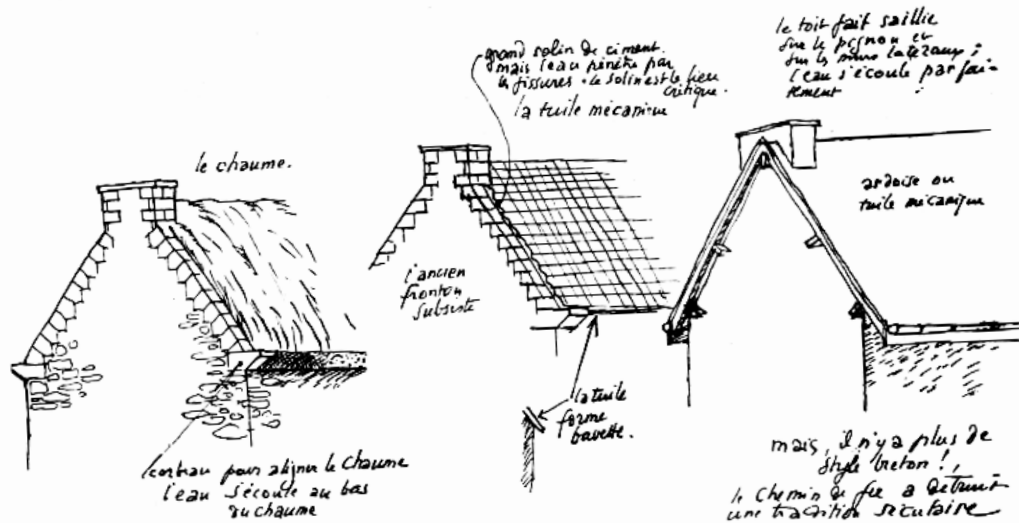 le chaume.
corbeau pour aligner le chaume
l'eau s'écoule au bas
du chaume
grand solin de ciment.
mais l'eau pénètre par
les fissures. le solin est le lieu
critique.
la tuile mécanique
l'ancien
fronton
subsiste
la tuile
forme
bavette.
le toit fait saillie
sur le pignon et
sur les murs latéraux ;
l'eau s'écoule parfai-
tement
ardoise ou
tuile mécanique
mais, il n'y a plus de
style breton !,
le chemin de fer a détruit
une tradition séculaire